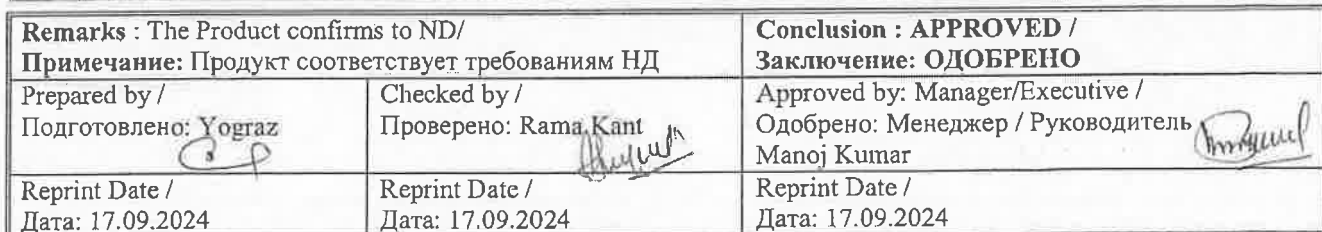 Remarks : The Product confirms to ND/
Примечание: Продукт соответствует требованиям НД
Conclusion : APPROVED /
Заключение: ОДОБРЕНО
Prepared by /
Подготовлено: Yograz
Checked by /
Проверено: Rama Kant
Approved by: Manager/Executive /
Одобрено: Менеджер / Руководитель
Manoj Kumar
Reprint Date /
Дата: 17.09.2024
Reprint Date /
Дата: 17.09.2024
Reprint Date /
Дата: 17.09.2024